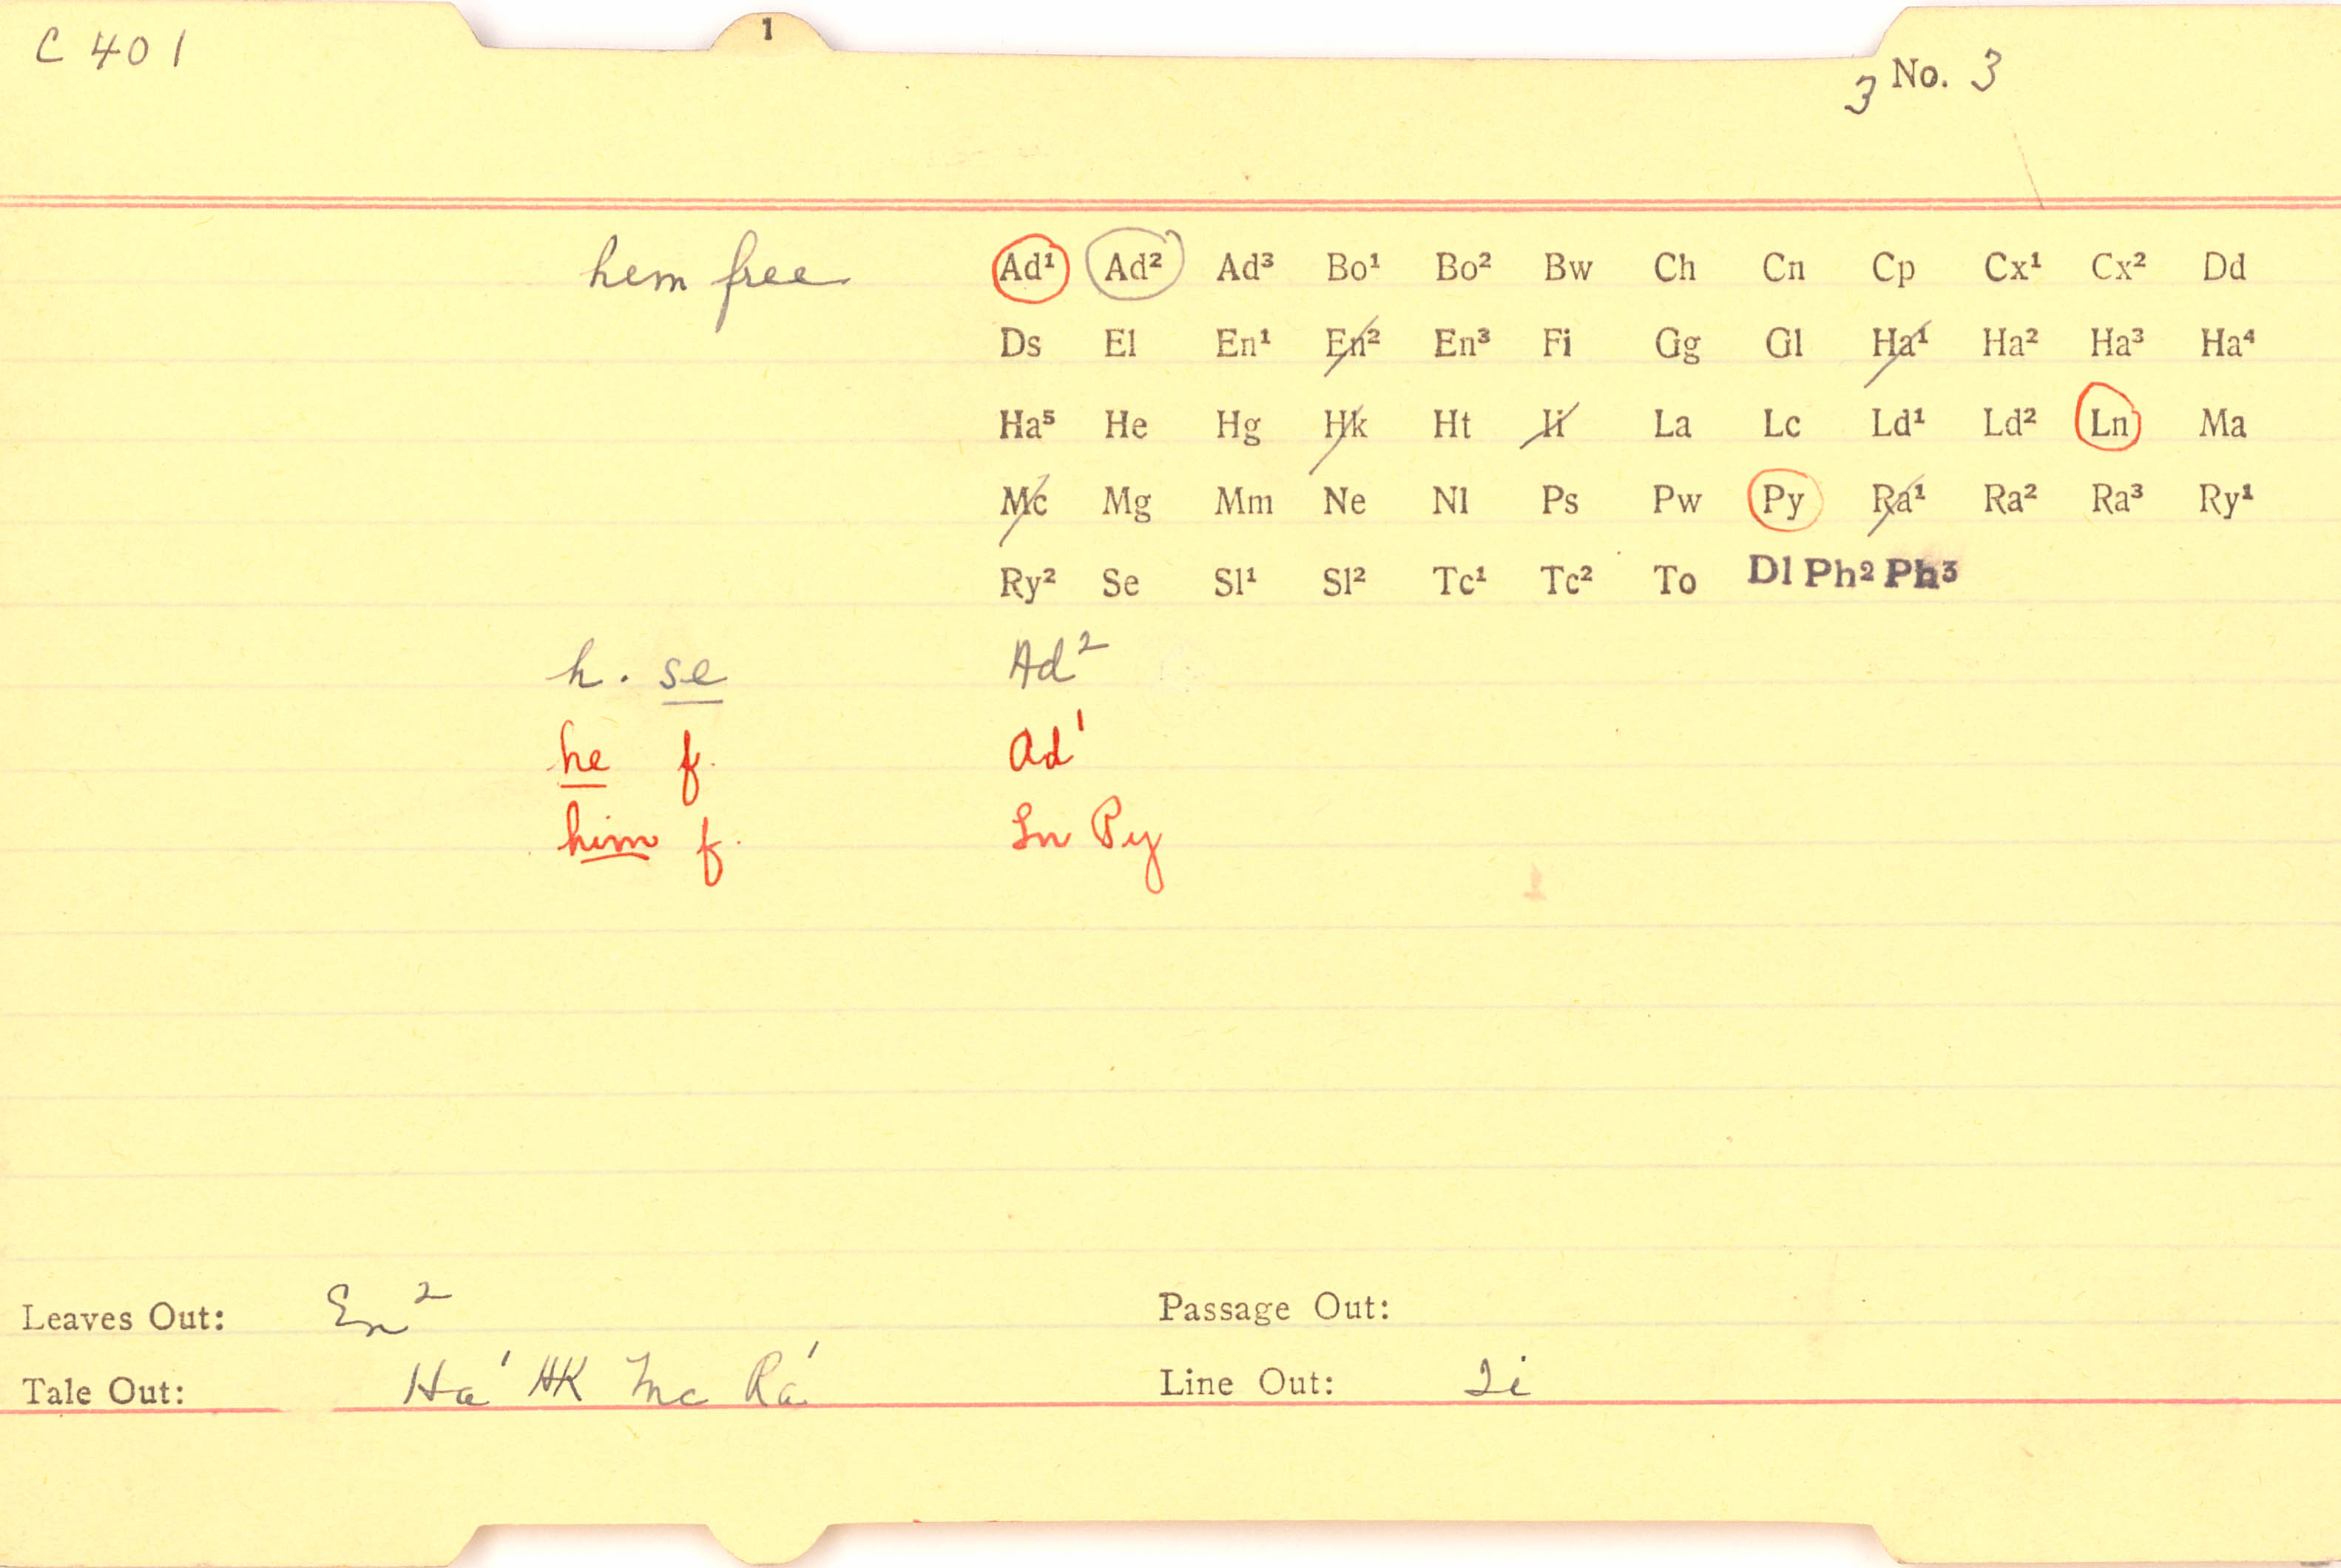 1
C 401
3 No. 3
hem free Ad¹ Ad² Ad³ Bo¹ Bo² Bw Ch Cn Cp Cx¹ Cx² Dd
Ds El En¹ En² En³ Fi Gg Gl Ha¹ Ha² Ha³ Ha⁴
Ha⁵ He Hg Hk Ht Ii La Lc Ld¹ Ld² Ln Ma
Mc Mg Mm Ne Nl Ps Pw Py Ra¹ Ra² Ra³ Ry¹
Ry² Se Sl¹ Sl² Tc¹ Tc² To Dl Ph² Ph³
h. se Ad²
he f. Ad¹
him f. Ln Py
1
Leaves Out: En² Passage Out:
Tale Out: Ha¹ Hk Mc Ra¹ Line Out: Ii